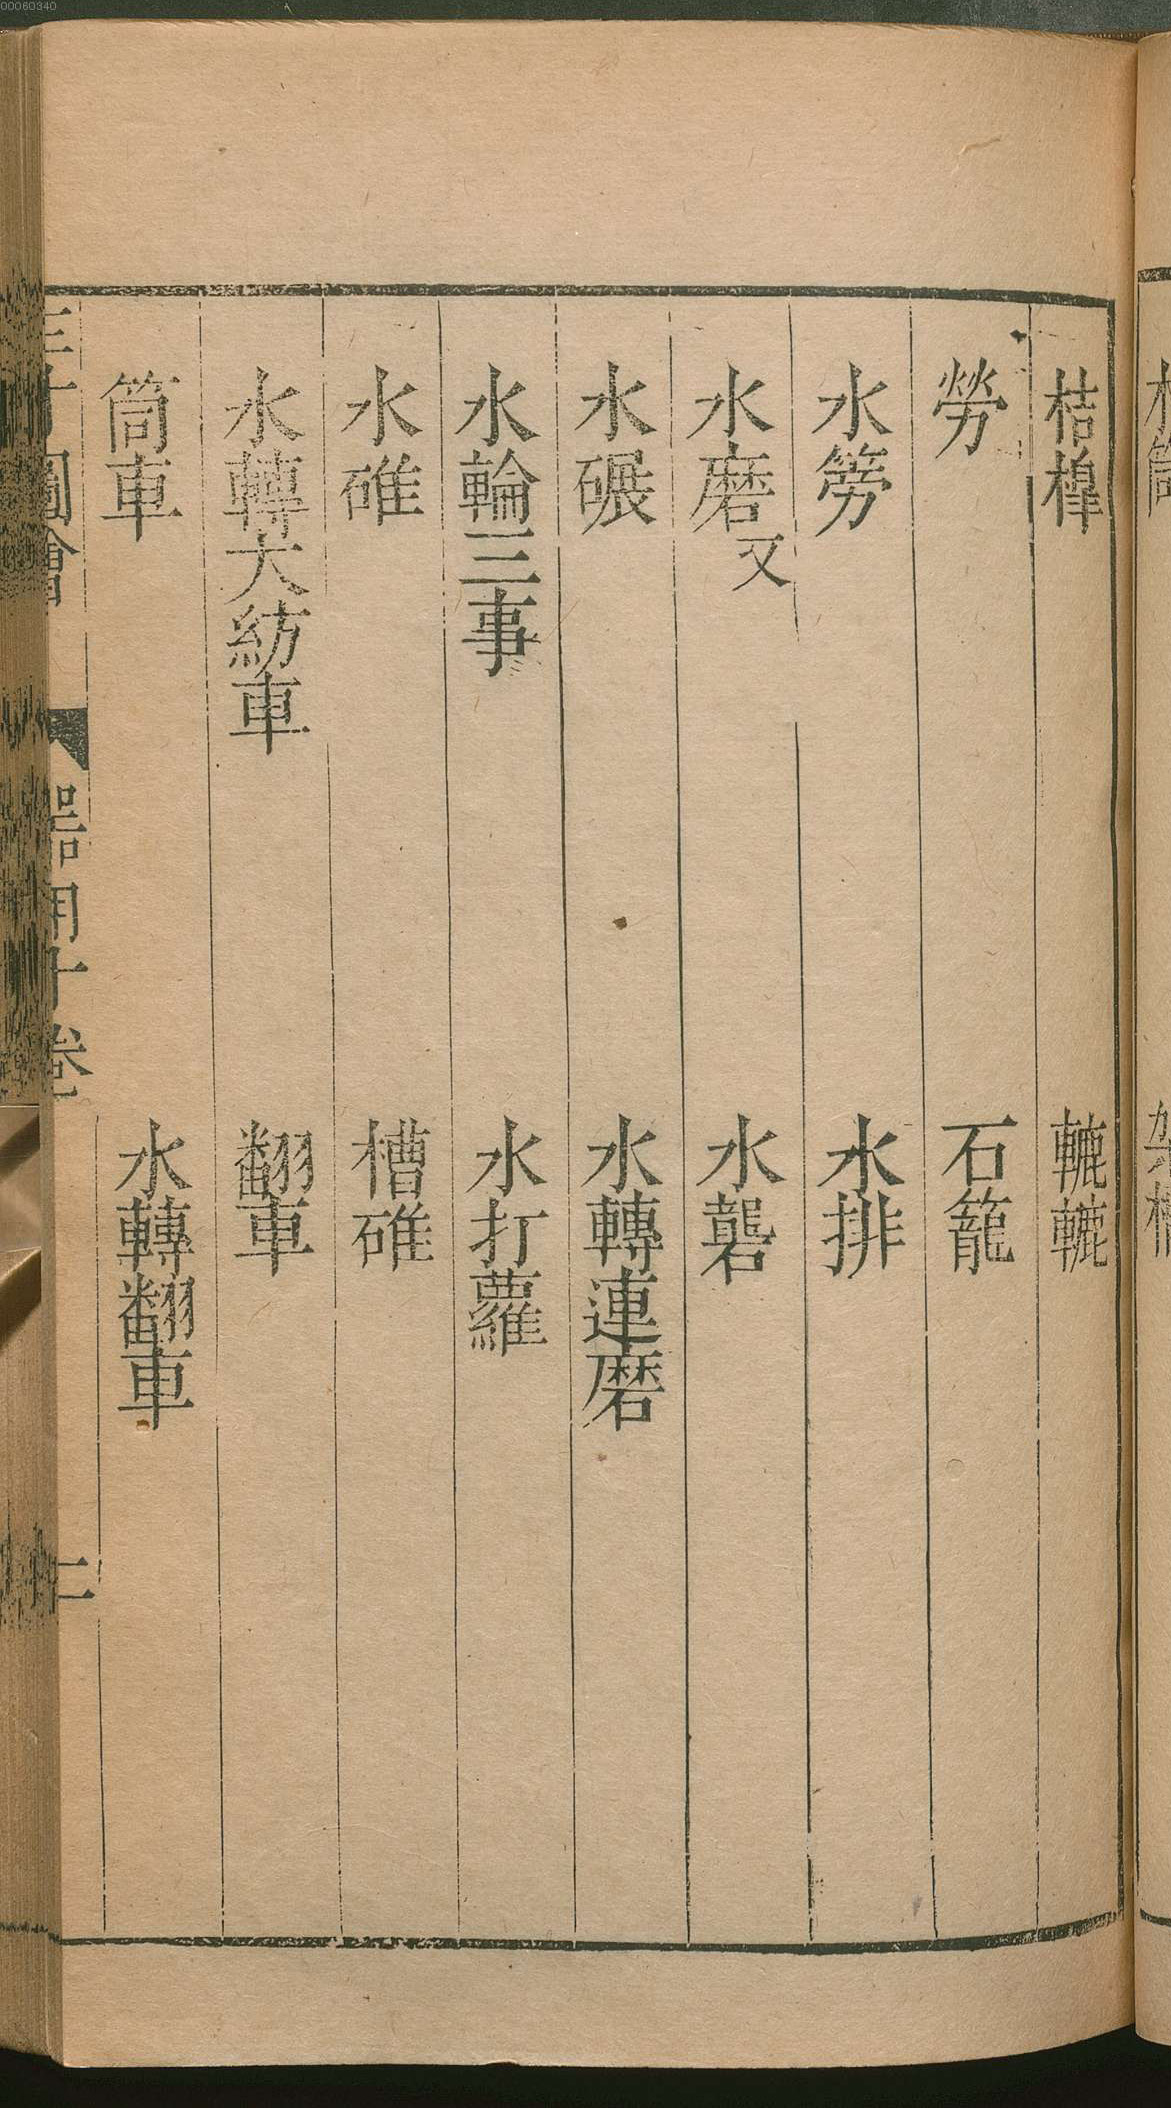 00060340
桔槹　轆轆
勞　石籠
水篣　水排
水磨又　水礱
水碾　水轉連磨
水輪三事　水打蘿
水碓　槽碓
水轉大紡車　翻車
筒車　水轉翻車
三才圖會　器用十卷　二